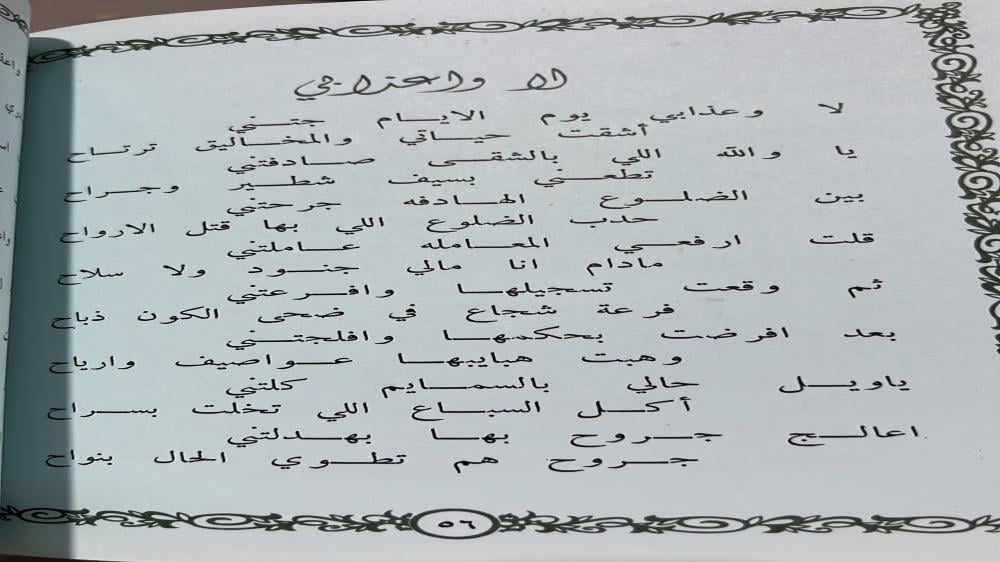 لا واعذابي
لا وعذابي يوم الايام جتني
أشقت حياتي والمخاليق ترتاح
يا والله اللي بالشقى صادفتني
تطعني بسيف شطير وجراح
بين الضلوع الهادفه جرحتني
حدب الضلوع اللي بها قتل الارواح
قلت ارفعي المعامله عاملتني
مادام انا مالي جنود ولا سلاح
ثم وقعت تسجيلها وافرعتني
فرعة شجاع في ضحى الكون ذباح
بعد افرضت بحكمها وافلجتني
وهبت هبايبها عواصيف وارياح
ياويل حالي بالسمايم كلتني
أكل السباع اللي تخلت بسراح
اعالج جروح بها بهدلتني
جروح هم تطوي الحال بنواح
٥٦